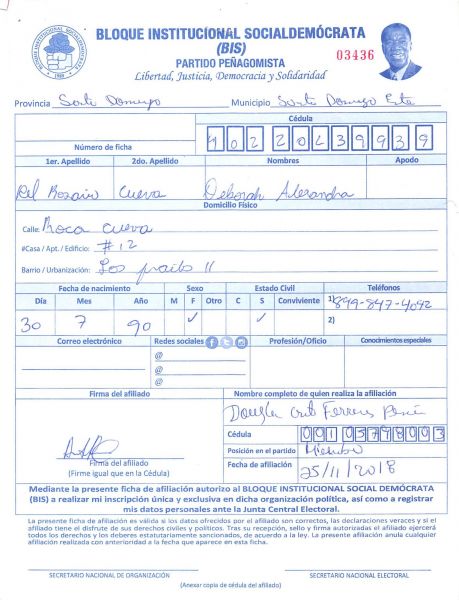 BLOQUE INSTITUCIONAL SOCIALDEMÓCRATA
(BIS)
PARTIDO PEÑAGOMISTA
Libertad, Justicia, Democracia y Solidaridad
03436
Provincia Santo Domingo Municipio Santo Domingo Este
Cédula
Número de ficha 40220439939
1er. Apellido 2do. Apellido Nombres Apodo
Del Rosario Cueva Deborah Alexandra
Domicilio Físico
Calle: Roca cueva
#Casa / Apt. / Edificio: #12
Barrio / Urbanización: Los II
Fecha de nacimiento Sexo Estado Civil Teléfonos
Día Mes Año M F Otro C S Conviviente 1) 849-847-4042
30 7 90 ✓ ✓ 2)
Correo electrónico Redes sociales Profesión/Oficio Conocimientos especiales
@
@
@
Firma del afiliado Nombre completo de quien realiza la afiliación
Cédula 00103798003
Posición en el partido Miembro
Firma del afiliado
(Firme igual que en la Cédula)
Fecha de afiliación 25/11/2018
Mediante la presente ficha de afiliación autorizo al BLOQUE INSTITUCIONAL SOCIAL DEMÓCRATA
(BIS) a realizar mi inscripción única y exclusiva en dicha organización política, así como a registrar
mis datos personales ante la Junta Central Electoral.
La presente ficha de afiliación es válida si los datos ofrecidos por el afiliado son correctos, las declaraciones veraces y si el
afiliado tiene el disfrute de sus derechos civiles y políticos. Tras su recepción, sello y firma autorizada el afiliado ejercerá
todos los derechos y los deberes estatutariamente sancionados, de acuerdo a la ley. La presente afiliación anula cualquier
afiliación realizada con anterioridad a la fecha que aparece en esta ficha.
SECRETARIO NACIONAL DE ORGANIZACIÓN SECRETARIO NACIONAL ELECTORAL
(Anexar copia de cédula del afiliado)